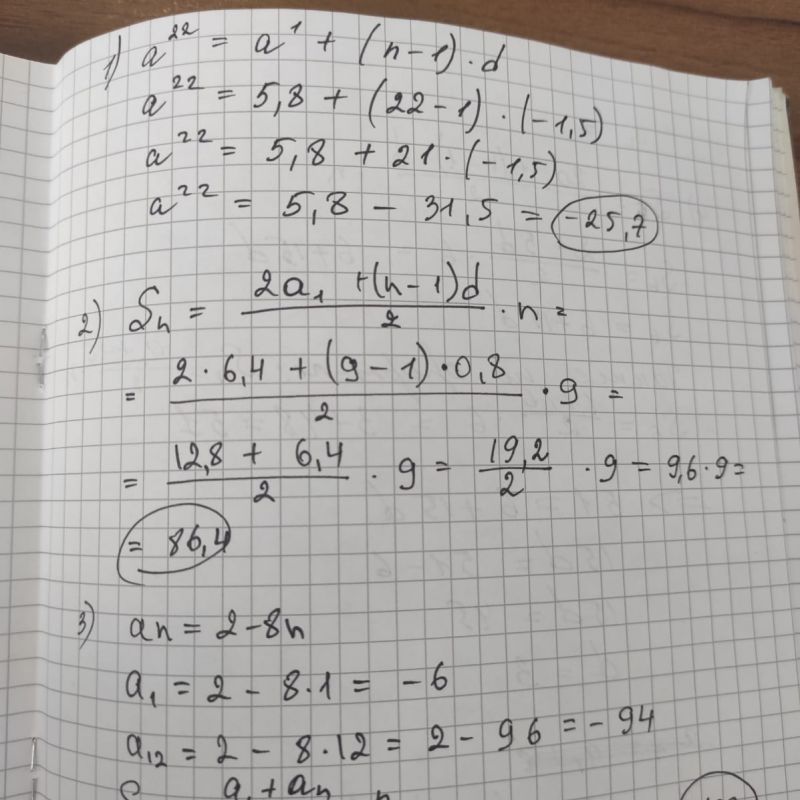 1) a²² = a¹ + (n-1)·d
a²² = 5,8 + (22-1)·(-1,5)
a²² = 5,8 + 21·(-1,5)
a²² = 5,8 - 31,5 = -25,7
2) Sₙ = (2a₁ + (n-1)d)/2 · n =
= (2·6,4 + (9-1)·0,8)/2 · 9 =
= (12,8 + 6,4)/2 · 9 = 19,2/2 · 9 = 9,6·9 =
= 86,4
3) an = 2-8n
a₁ = 2 - 8·1 = -6
a₁₂ = 2 - 8·12 = 2 - 96 = -94
a₁ + an n